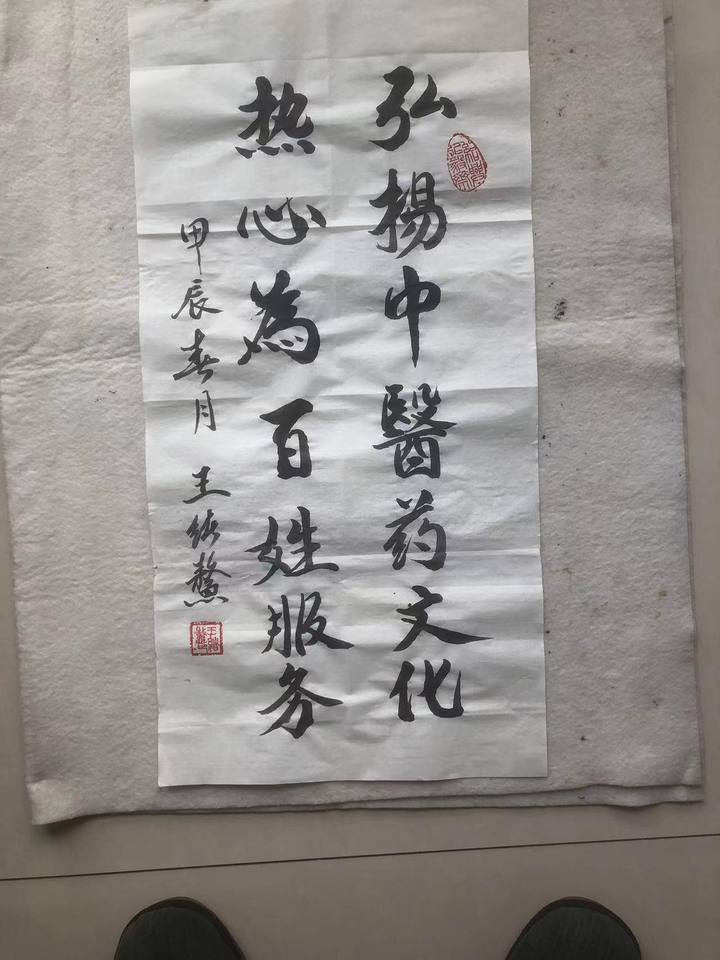 弘揚中醫药文化
热心為百姓服务
甲辰春月 王绪鳌